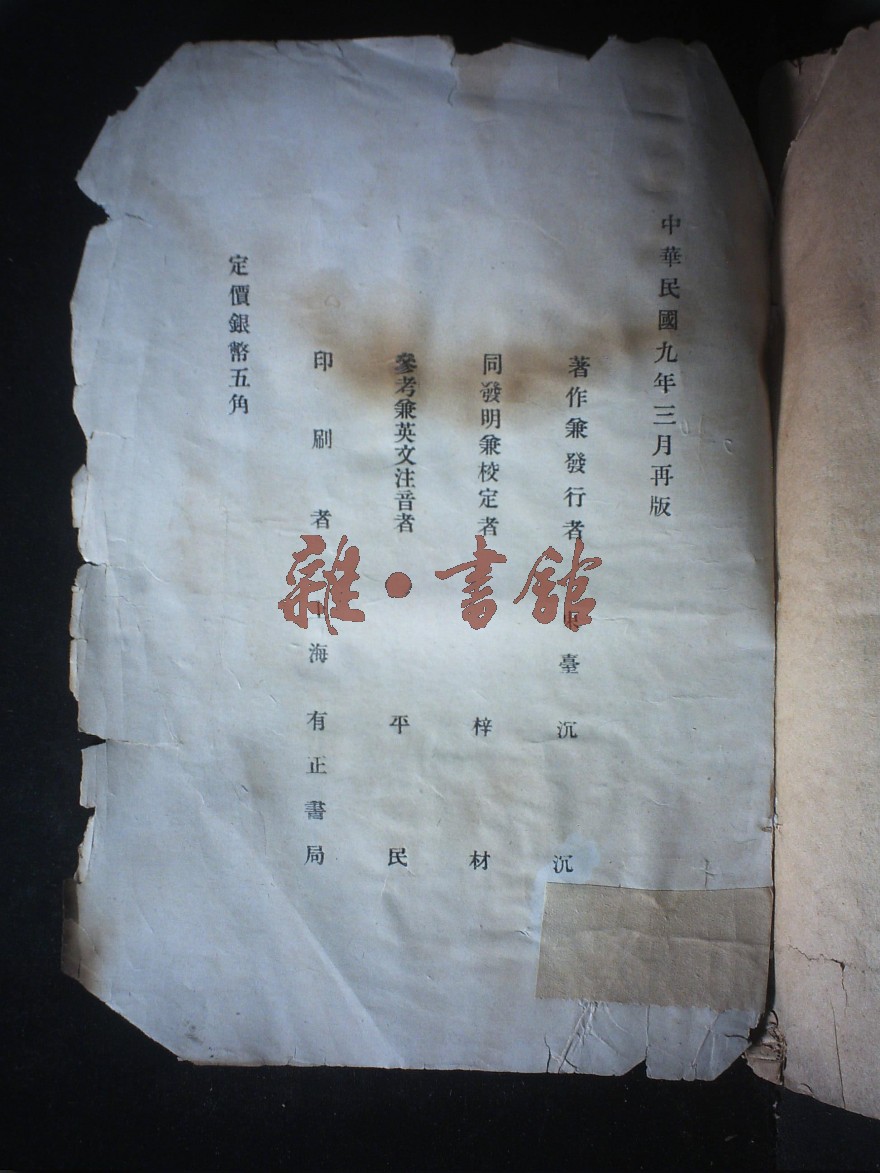 中華民國九年三月再版
著作兼發行者 臺沉沉
同發明兼校定者 梓材
參考兼英文注音者 平民
印刷者 上海有正書局
定價銀幣五角
雜·書館